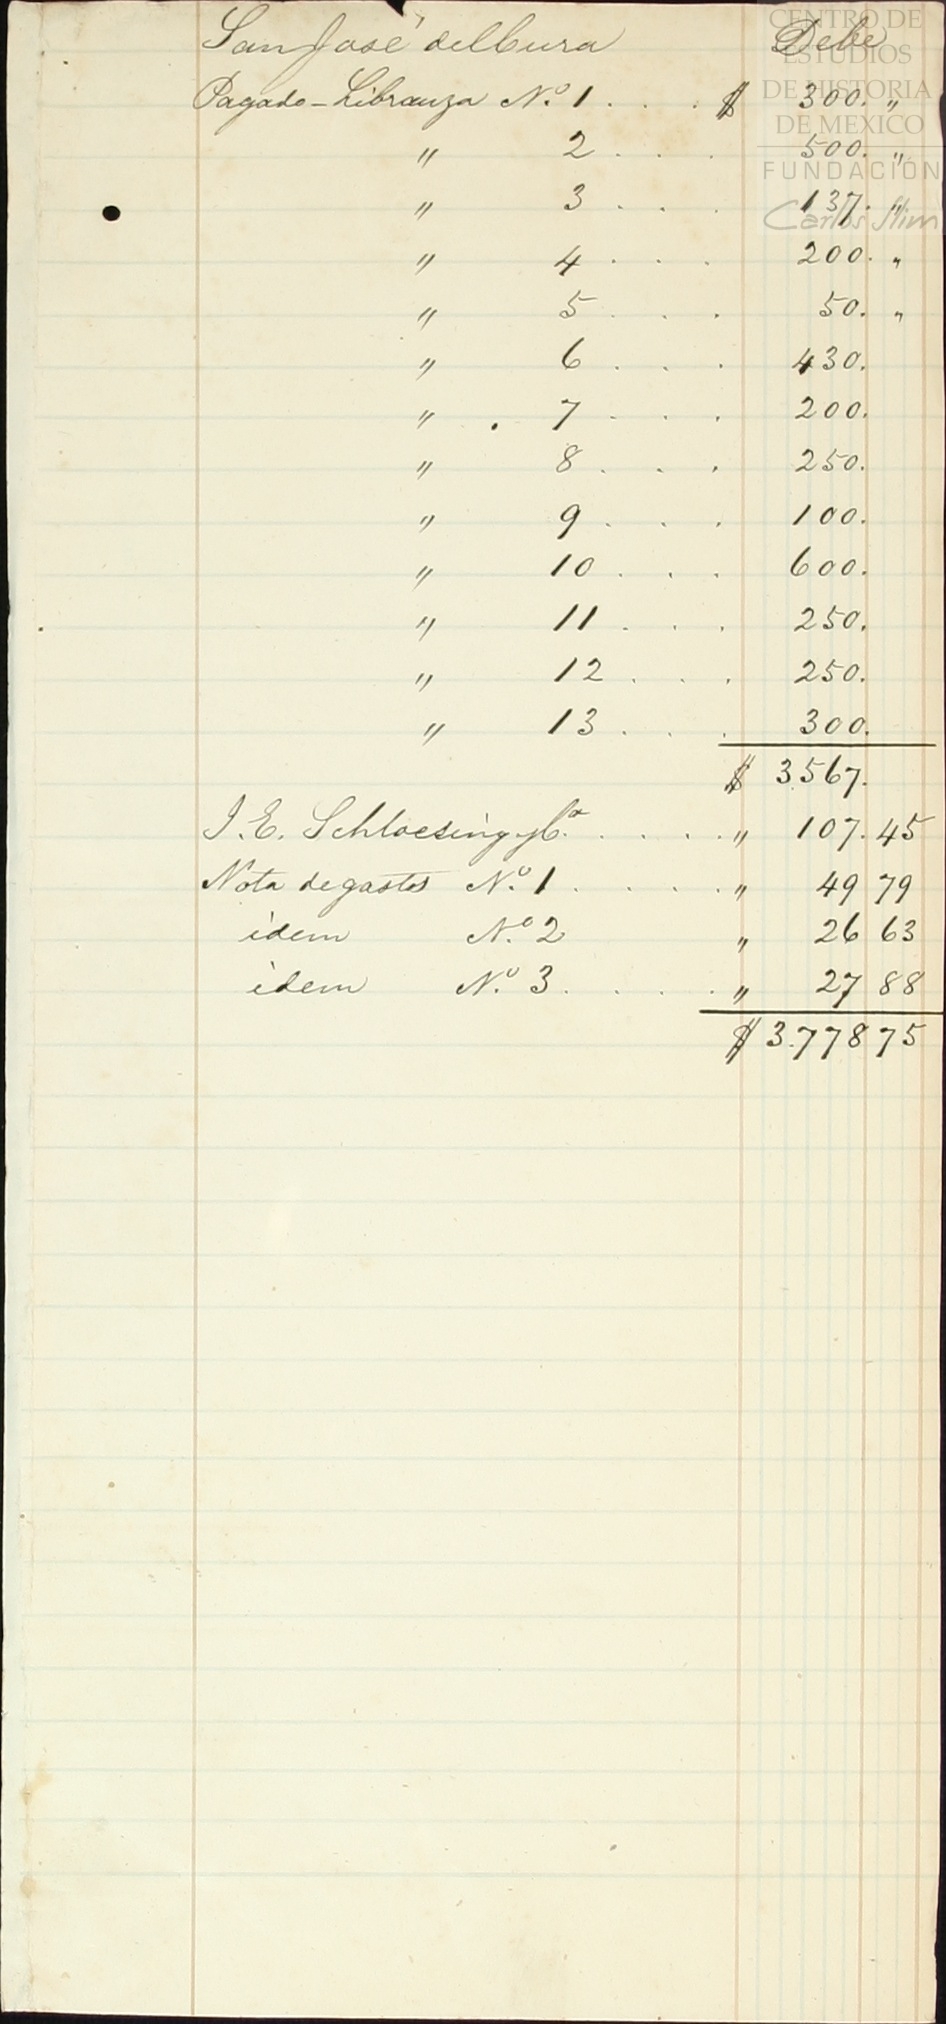 San José del Cura Debe
Pagado - Libranza N.º 1 . . . $ 300. "
" 2 . . . 500. "
" 3 . . . 137. "
" 4 . . . 200. "
" 5 . . . 50. "
" 6 . . . 430.
" 7 . . . 200.
" 8 . . . 250.
" 9 . . . 100.
" 10 . . . 600.
" 11 . . . 250.
" 12 . . . 250.
" 13 . . . 300.
$ 3567.
J. E. Schloesing y Cª. . . . . " 107. 45
Nota de gastos N.º 1 . . . . " 49 79
idem N.º 2 " 26 63
idem N.º 3 . . . . " 27 88
$ 3.778 75
CENTRO DE
ESTUDIOS
DE HISTORIA
DE MEXICO
FUNDACIÓN
Carlos Slim